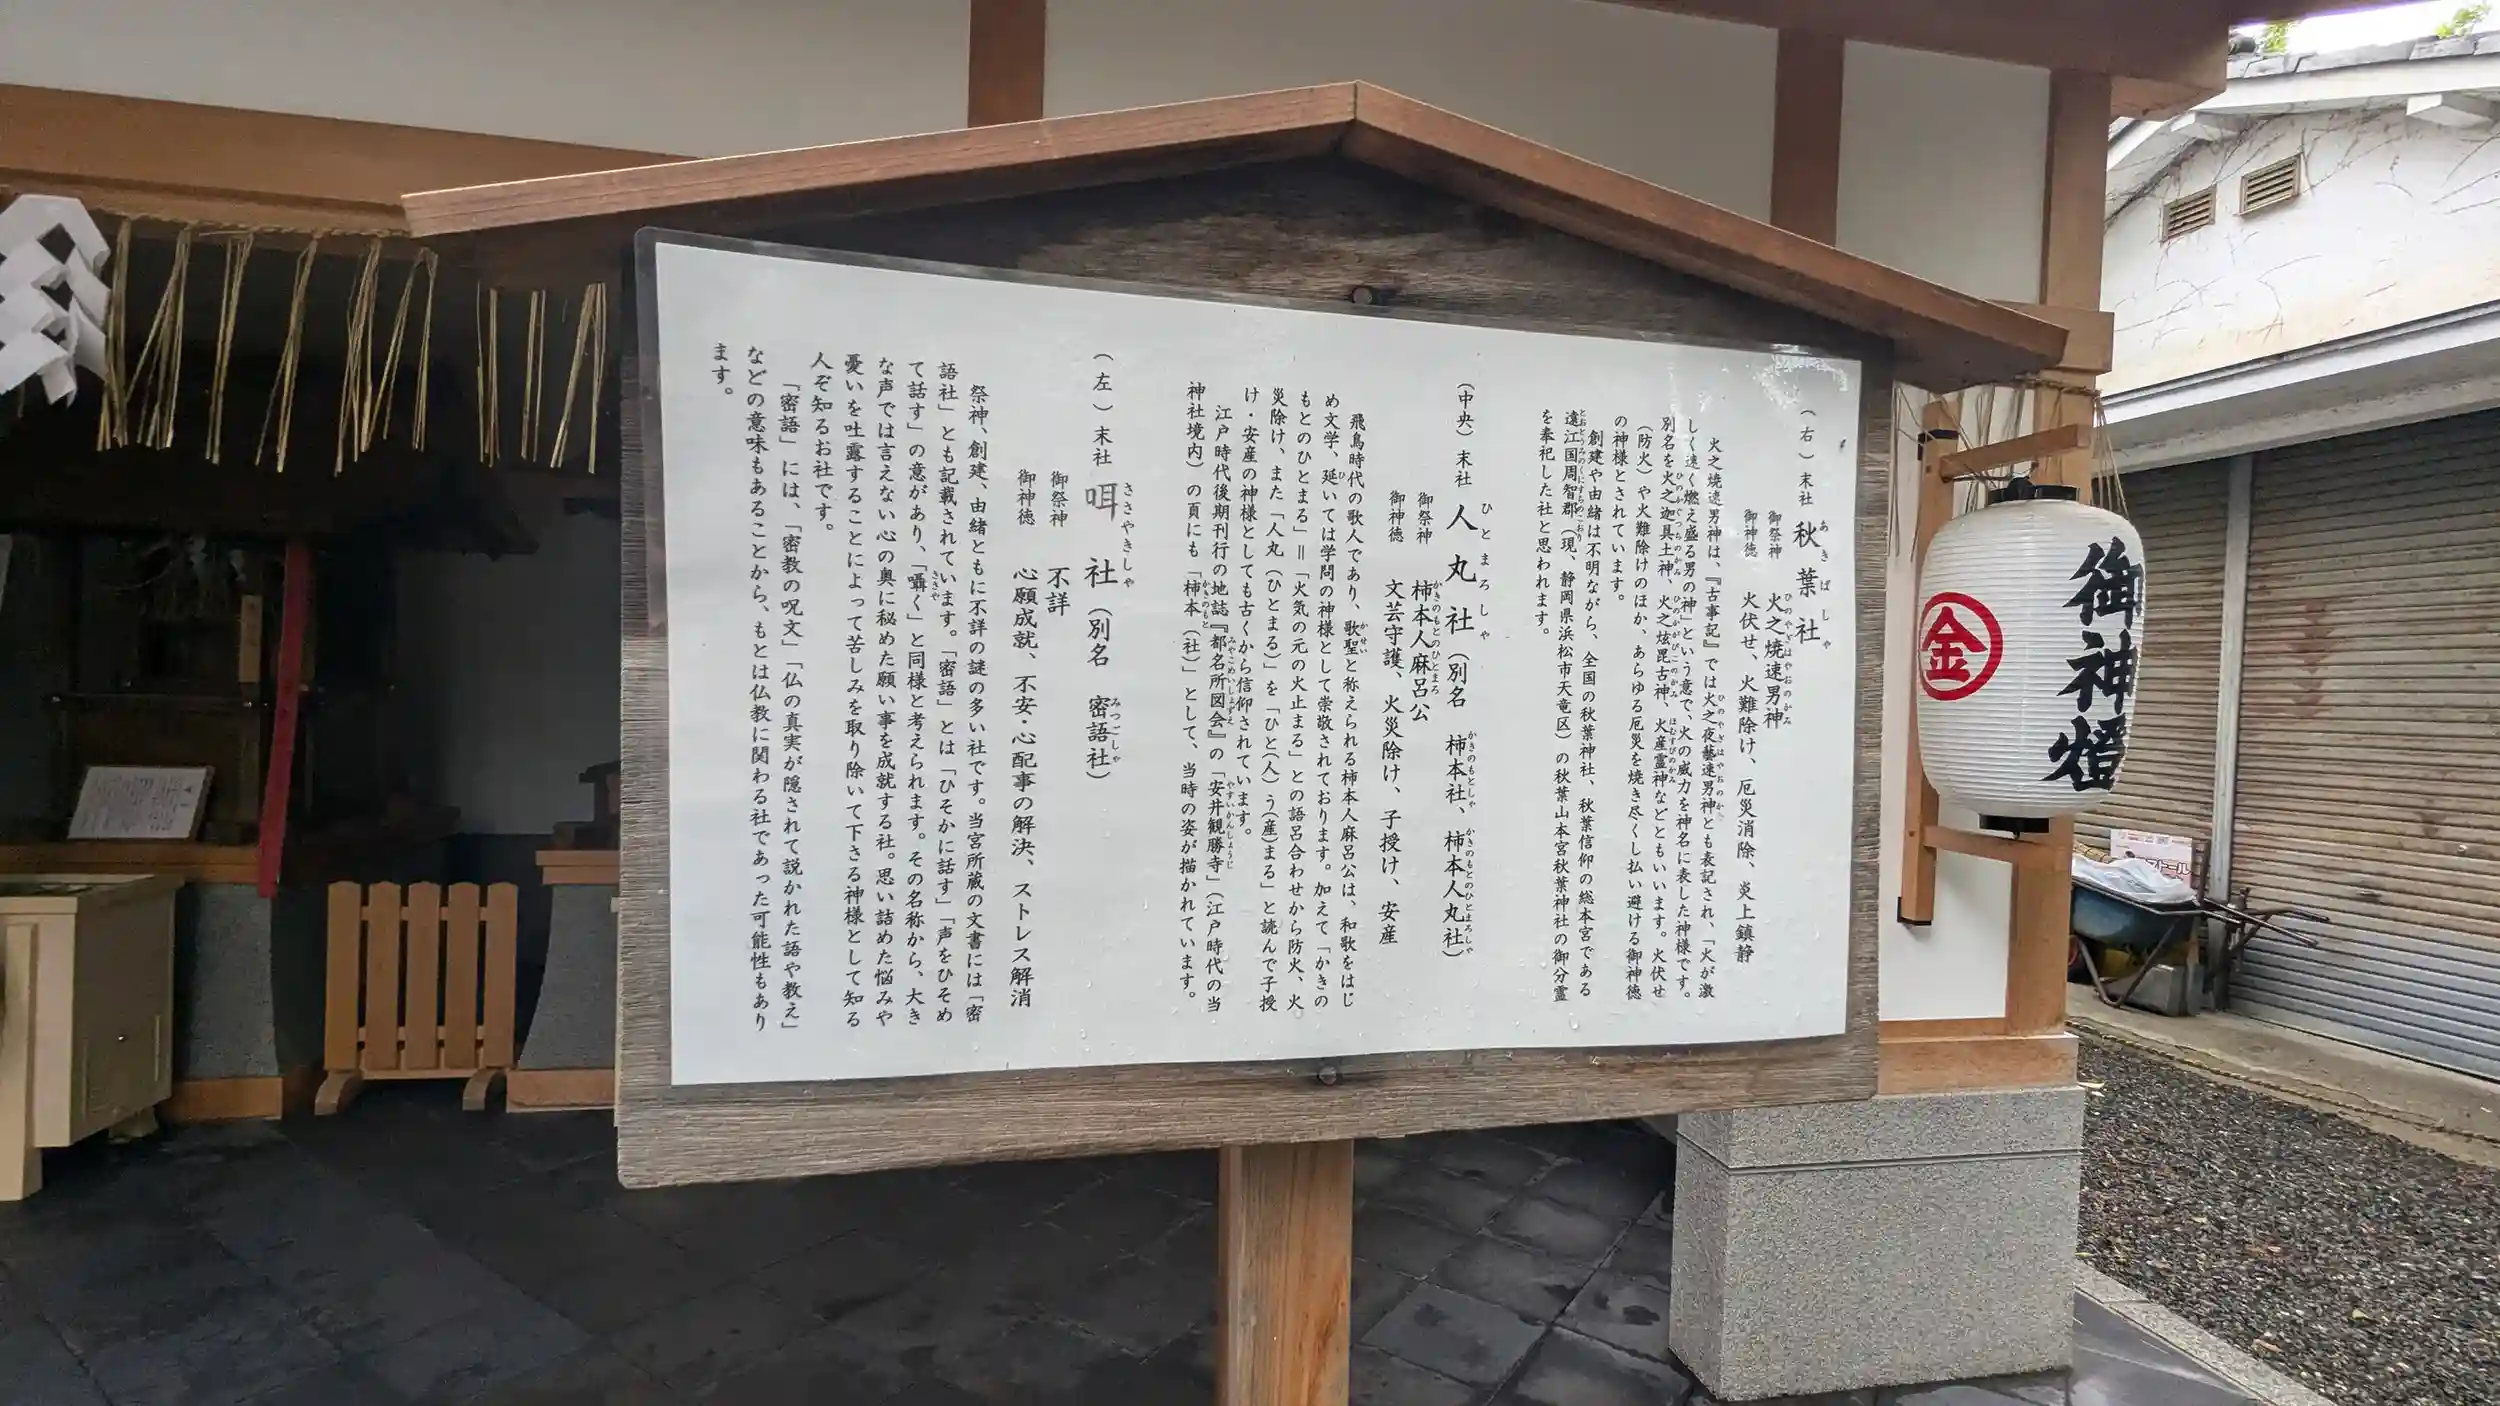 (右)末社 秋葉社
あきばしゃ
御祭神 火之焼速男神
ひのやぎはやおのかみ
御神徳 火伏せ、火難除け、厄災消除、炎上鎮静
火之焼速男神は、『古事記』では火之夜藝速男神とも表記され、「火が激
しく速く燃え盛る男の神」という意で、火の威力を神名に表した神様です。
別名を火之迦具土神、火之炫毘古神、火産霊神などともいいます。火伏せ
(防火)や火難除けのほか、あらゆる厄災を焼き尽くし払い避ける御神徳
の神様とされています。
創建や由緒は不明ながら、全国の秋葉神社、秋葉信仰の総本宮である
遠江国周智郡(現、静岡県浜松市天竜区)の秋葉山本宮秋葉神社の御分霊
を奉祀した社と思われます。
(中央)末社 人丸社(別名 柿本社、柿本人丸社)
ひとまろしゃ かきのもとしゃ かきのもとのひとまろしゃ
御祭神 柿本人麻呂公
かきのもとのひとまろ
御神徳 文芸守護、火災除け、子授け、安産
飛鳥時代の歌人であり、歌聖と称えられる柿本人麻呂公は、和歌をはじ
め文学、延いては学問の神様として崇敬されております。加えて「かきの
もとのひとまる」=「火気の元の火止まる」との語呂合わせから防火、火
災除け、また「人丸(ひとまる)」を「ひと(人)う(産)まる」と読んで子授
け・安産の神様としても古くから信仰されています。
江戸時代後期刊行の地誌『都名所図会』の「安井観勝寺」(江戸時代の当
神社境内)の頁にも「柿本(社)」として、当時の姿が描かれています。
(左)末社 咡社(別名 密語社)
ささやきしゃ みつごしゃ
御祭神 不詳
御神徳 心願成就、不安・心配事の解決、ストレス解消
祭神、創建、由緒ともに不詳の謎の多い社です。当宮所蔵の文書には「密
語社」とも記載されています。「密語」とは「ひそかに話す」「声をひそめ
て話す」の意があり、「囁く」と同様と考えられます。その名称から、大き
な声では言えない心の奥に秘めた願い事を成就する社。思い詰めた悩みや
憂いを吐露することによって苦しみを取り除いて下さる神様として知る
人ぞ知るお社です。
「密語」には、「密教の呪文」「仏の真実が隠されて説かれた語や教え」
などの意味もあることから、もとは仏教に関わる社であった可能性もあり
ます。
御神燈
金